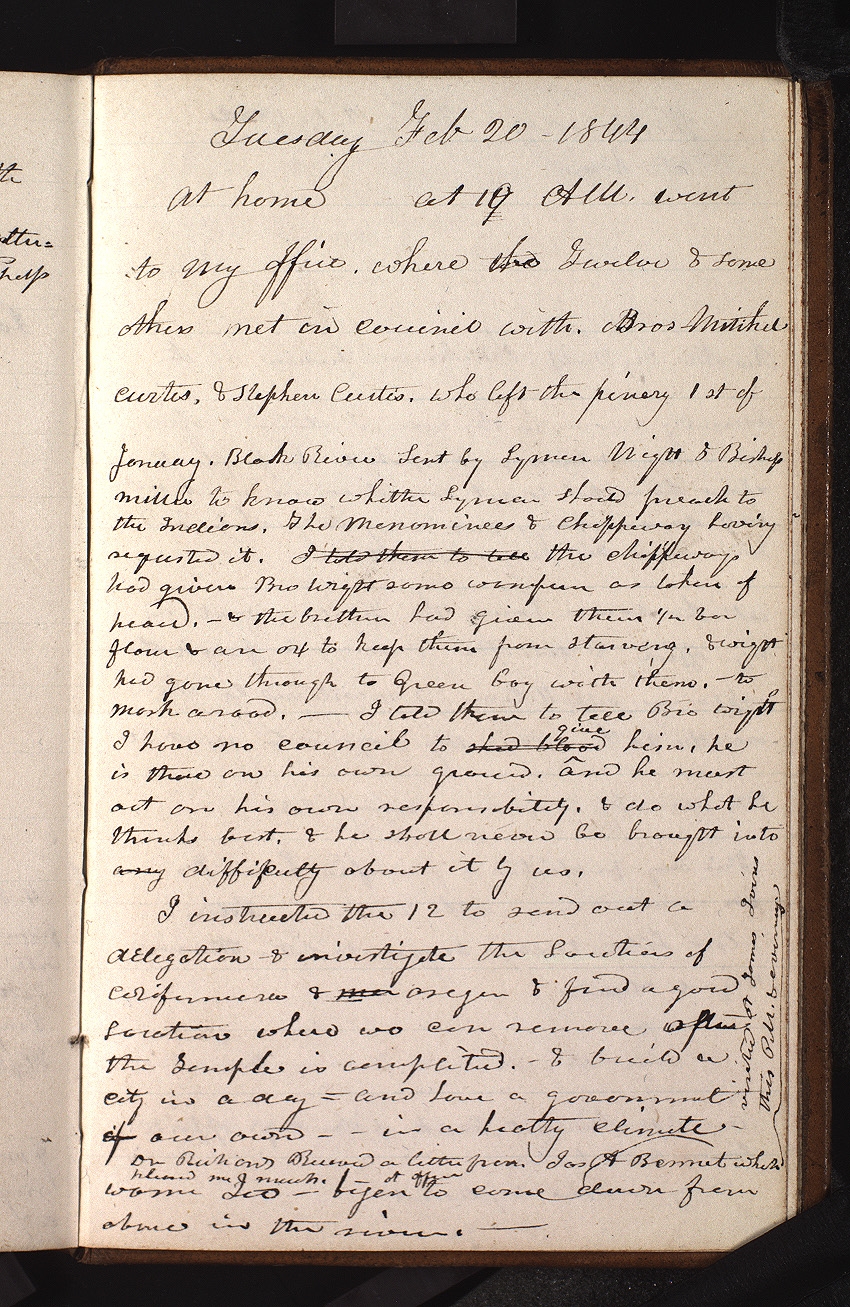 Tuesday Feb 20 - 1844
At home at 10 A.M. went
to my office. where the Twelve & some
others met in council with. Bros Mitchel
curtis, & Stephen Curtis. who left the pinery 1st of
January. Black River sent by Lyman Wight & Bishop
miller to know whither Lyman should preach to
the Indians. The Menominees & Chippeway having
requsted it. I told them to tell the chippeways
had given Bro wight some wampum as token of
peace. - & the brethren had given them ½ bar
flour & an ox to keep them from starving. & wight
had gone through to Green bay with them. - to
mark a road. — I told them to tell Bro wight
give
I have no council to shed blood him, he
is there on his own ground. And he must
act on his own responsibility. & do what he
thinks best. & he shall never be brought into
any difficulty about it by us.
I instructed the 12 to send out a
delegation & investigate the Locations of
California & oregon & find a good
Location where we can remove after
the Temple is completed. - & build a
city in a day = and have a government
of our own - - in a healthy climate -
Dr Richards Received a letter from Jas A Bennet which
pleased me much. at office
warm Ice - began to come down from
above in the river. —
visited at James Ivins
this P.M. & evening